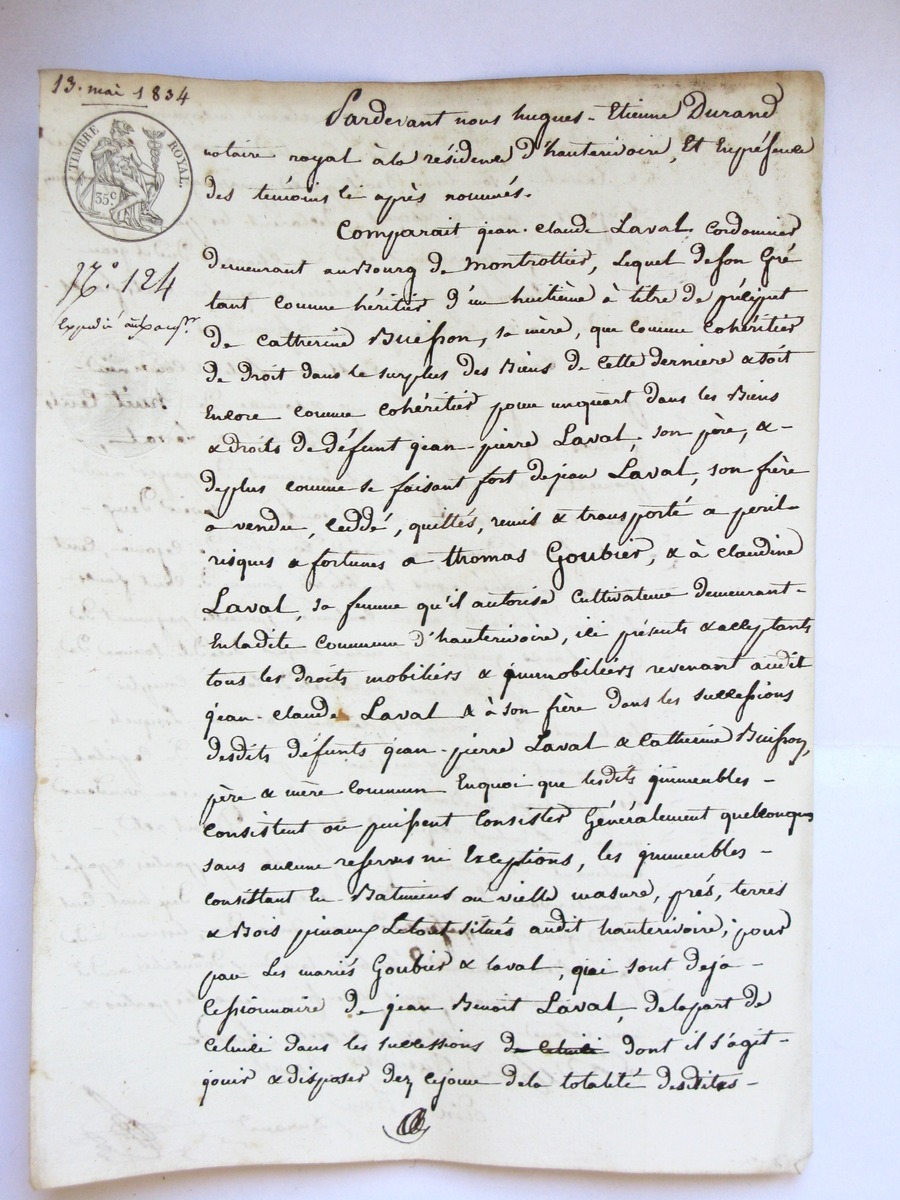 13. mai 1834
TIMBRE ROYAL
35c
N.° 124
Pardevant nous hugues-Etienne Durand
notaire royal à la résidence d'hauterivoire, Et En présence
des témoins ci après nommés.
Comparait jean-claude Laval cordonnier
demeurant au Bourg de Montrottier, Lequel de son gré
tant comme héritier d'un huitième à titre de préciput
de Catherine Buisson, sa mère, que comme cohéritier
de Droit dans le surplus des Biens de cette derniere & soit
Encore comme cohéritier pour un quart dans les Biens
& droits de défunt jean-pierre Laval, son père, &-
deplus comme se faisant fort de jean Laval, son frère
à vendu, ceddé, quittés, remis & transporté a peril-
risques & fortunes a thomas Goubier, & à claudine
Laval, sa femme qu'il autorise Cultivateurs demeurant-
En ladite commune d'hauterivoire, ici présents & acceptants
tous les droits mobiliers & jmmobiliers revenant audit
jean-claude Laval & à son frère dans les successions
desdits défunts jean-pierre Laval & Catherine Buisson,
père & mère commun Enquoi que lesdits jmmeubles-
Consistent ou puissent Consister Généralement quelconques
sans aucune reserves ni Exceptions, les jmmeubles-
consistant En Batiments ou vielle masure, prés, terres
& Bois pinaux Letout situés audit hauterivoire; pour
par Les mariés Goubier & Laval, qui sont deja-
Cessionnaire de jean Benoit Laval, delapart de
Celuici dans les successions de celuici dont il s'agit-
jouir & disposer dez cejour dela totalité desdites-